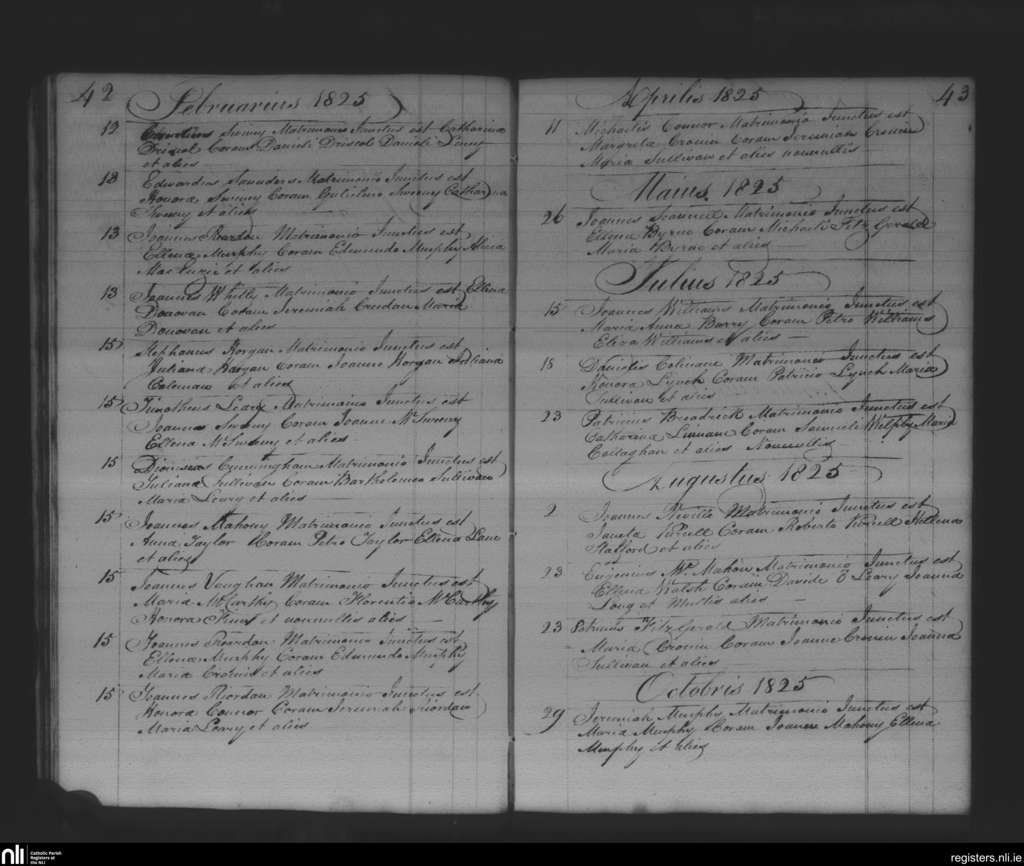 42
Februarius 1825
13 Sweny Matrimonio Junctus est Catharina
Driscol Coram Daniele Driscol Daniele
et aliis
13 Edwardus Saunders Matrimonio Junctus est
Honora Sweeny Coram Gulielmo Sweeny Catharina
Sweny et aliis
13 Joannes Reardon Matrimonio Junctus est
Ellena Murphy Coram Edmundo Murphy
et aliis
13 Joannes Matrimonio Junctus est Ellena
Donovan Coram Jeremiah Maria
Donovan et aliis
15 Stephanus Horgan Matrimonio Junctus est
Juliana Coram Joanne Horgan Juliana
Coleman et aliis
15 Timotheus Leary Matrimonio Junctus est
Joanna Sweeny Coram Joanne McSweeny
Ellena et aliis
15 Dionisius Cunningham Matrimonio Junctus est
Juliana Sullivan Coram Bartholomeo Sullivan
Maria Leary et aliis
15 Joannes Mahony Matrimonio Junctus est
Anna Taylor Coram Petro Taylor Ellena Lane
et aliis
15 Joannes Vaughan Matrimonio Junctus est
Maria McCarthy Coram Florentio McCarthy
Honora et nonnullis aliis
15 Joannes Reardon Matrimonio Junctus est
Ellena Murphy Coram Edmundo Murphy
Maria et aliis
15 Joannes Riordan Matrimonio Junctus est
Honora Connor Coram Jeremiah Riordan
Maria Leary et aliis
43
Aprilis 1825
11 Michaelis Connor Matrimonio Junctus est
Margreta Cronin Coram Jeremiah Cronin
Maria Sullivan et aliis nonnullis
Maius 1825
26 Joannes Matrimonio Junctus est
Ellena Byrne Coram Michaele Fitz Gerald
Maria Byrne et aliis
Julius 1825
15 Joannes Williams Matrimonio Junctus est
Maria Anna Barry Coram Petro Williams
Eliza Williams et aliis
18 Danielis Matrimonio Junctus est
Honora Lynch Coram Patricio Lynch Maria
Sullivan et aliis
23 Patricius Broadrick Matrimonio Junctus est
Catharina Linnane Coram Samuele Welply Maria
Callaghan et aliis Nonnullis
Augustus 1825
2 Joannes Matrimonio Junctus est
Purcell Coram Roberto Purcell
Stafford et aliis
23 Eugenius McMahon Matrimonio Junctus est
Ellena Walsh Coram Davide O Leary Joanna
Long et Multis aliis
23 Patricius Fitz Gerald Matrimonio Junctus est
Maria Cronin Coram Joanne Cronin Joanna
Sullivan et aliis
Octobris 1825
29 Jeremiah Murphy Matrimonio Junctus est
Maria Murphy Coram Joanne Mahony Ellena
Murphy et aliis
nli Catholic Parish
Registers at
the NLI
registers.nli.ie